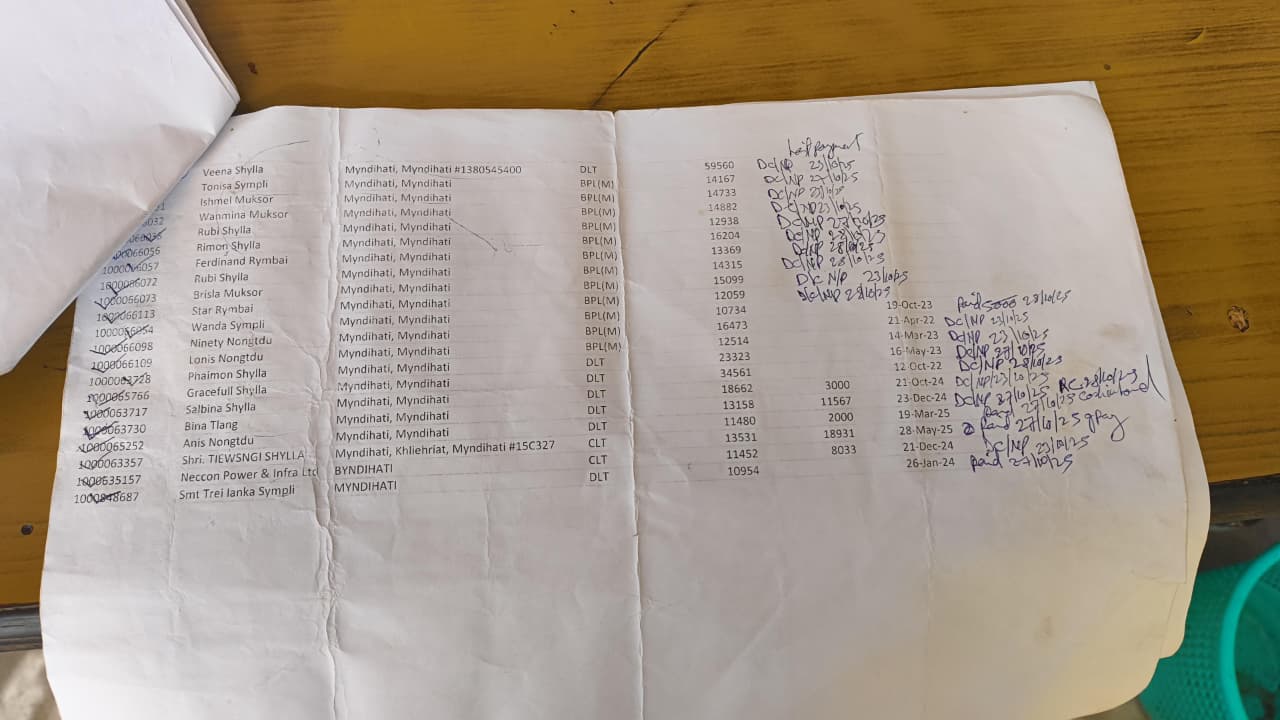 last payment
Veena Shylla Myndihati, Myndihati #1380545400 DLT 59560 DC/NP 23/10/25
Tonisa Sympli Myndihati, Myndihati BPL(M) 14167 DC/NP 27/10/25
Ishmel Muksor Myndihati, Myndihati BPL(M) 14733 DC/NP 23/10/25
Wanmina Muksor Myndihati, Myndihati BPL(M) 14882 DC/NP 23/10/25
Rubi Shylla Myndihati, Myndihati BPL(M) 12938 DC/NP 27/10/25
Rimon Shylla Myndihati, Myndihati BPL(M) 16204 DC/NP 23/10/25
1000066057 Ferdinand Rymbai Myndihati, Myndihati BPL(M) 13369 DC/NP 28/10/25
1000066072 Rubi Shylla Myndihati, Myndihati BPL(M) 14315 DC/NP 28/10/25
1000066073 Brisla Muksor Myndihati, Myndihati BPL(M) 15099 DC NP 23/10/25
1000066113 Star Rymbai Myndihati, Myndihati BPL(M) 12059 DC/NP 28/10/25
1000066054 Wanda Sympli Myndihati, Myndihati BPL(M) 10734 19-Oct-23 Paid 5000 28/10/25
1000066098 Ninety Nongtdu Myndihati, Myndihati BPL(M) 16473 21-Apr-22 DC/NP 23/10/25
1000066109 Lonis Nongtdu Myndihati, Myndihati BPL(M) 12514 14-Mar-23 DC/NP 23/10/25
1000063728 Phaimon Shylla Myndihati, Myndihati DLT 23323 16-May-23 DC/NP 27/10/25
1000065766 Gracefull Shylla Myndihati, Myndihati DLT 34561 12-Oct-22 DC/NP 28/10/25
1000063717 Salbina Shylla Myndihati, Myndihati DLT 18662 3000 21-Oct-24 DC/NP/23/10/25
1000063730 Bina Tlang Myndihati, Myndihati DLT 13158 11567 23-Dec-24 DC/NP 27/10/25 RC
1000065252 Anis Nongtdu Myndihati, Myndihati DLT 11480 2000 19-Mar-25 Paid 27/10/25
1000063357 Shri. TIEWSNGI SHYLLA Myndihati, Khliehriat, Myndihati #15C327 CLT 13531 18931 28-May-25 Paid 27/10/25 gpay
1000635157 Neccon Power & Infra Ltd BYNDIHATI CLT 11452 8033 21-Dec-24 DC/NP 23/10/25
1000848687 Smt Trei Ianka Sympli MYNDIHATI DLT 10954 26-Jan-24 paid 27/10/25